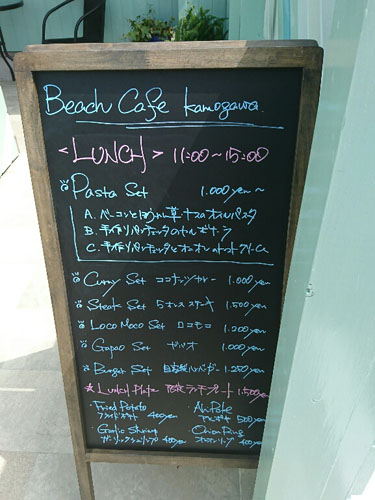 Beach Cafe Kamogawa
<LUNCH> 11:00~15:00
Pasta Set 1.000yen~
A. ベーコンとほうれん草・ナスのオイルパスタ
B. 手作りパンチェッタのカルボナーラ
C. 手作りパンチェッタと
Curry Set ココナッツカレー 1.000yen
Steak Set 5オンスステーキ 1.500yen
Loco Moco Set ロコモコ 1.200yen
Gapao Set ガパオ 1.000yen
Burger Set 自家製ハンバーガー 1.250yen
☆ Lunch Plate ランチプレート 1.500yen
・Fried Potato
フライドポテト 400yen
・Ahi Poke
アヒポキ 500yen
・Garlic Shrimp
ガーリックシュリンプ 400yen
・Onion Ring
オニオンリング 400yen